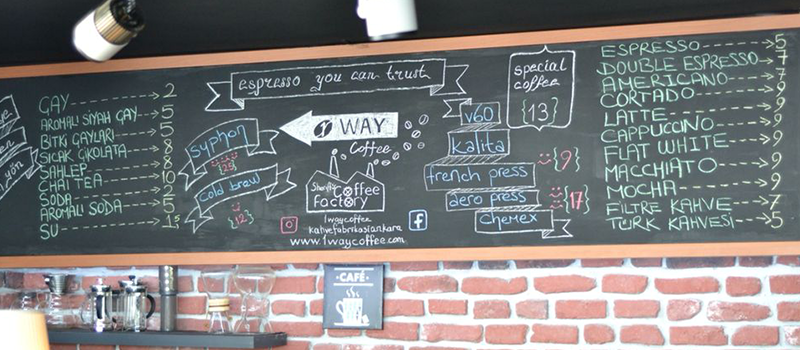 ÇAY 2
AROMALI SİYAH ÇAY 5
BİTKİ ÇAYLARI 5
SICAK ÇİKOLATA 8
SAHLEP 8
CHAI TEA 10
SODA 2
AROMALI SODA 5
SU 1.5
espresso you can trust
syphon
{25}
cold brew
{12}
WAY
Coffee
Coffee
Factory
1waycoffee
kahvefabrikasiankara
www.1waycoffee.com
special
coffee
{13}
v60
kalita
french press
aero press
chemex
{9}
{17}
ESPRESSO 5
DOUBLE ESPRESSO 7
AMERICANO 7
CORTADO 9
LATTE 9
CAPPUCCINO 9
FLAT WHITE 9
MACCHIATO 9
MOCHA 9
FILTRE KAHVE 7
TÜRK KAHVESİ 5
CAFÉ